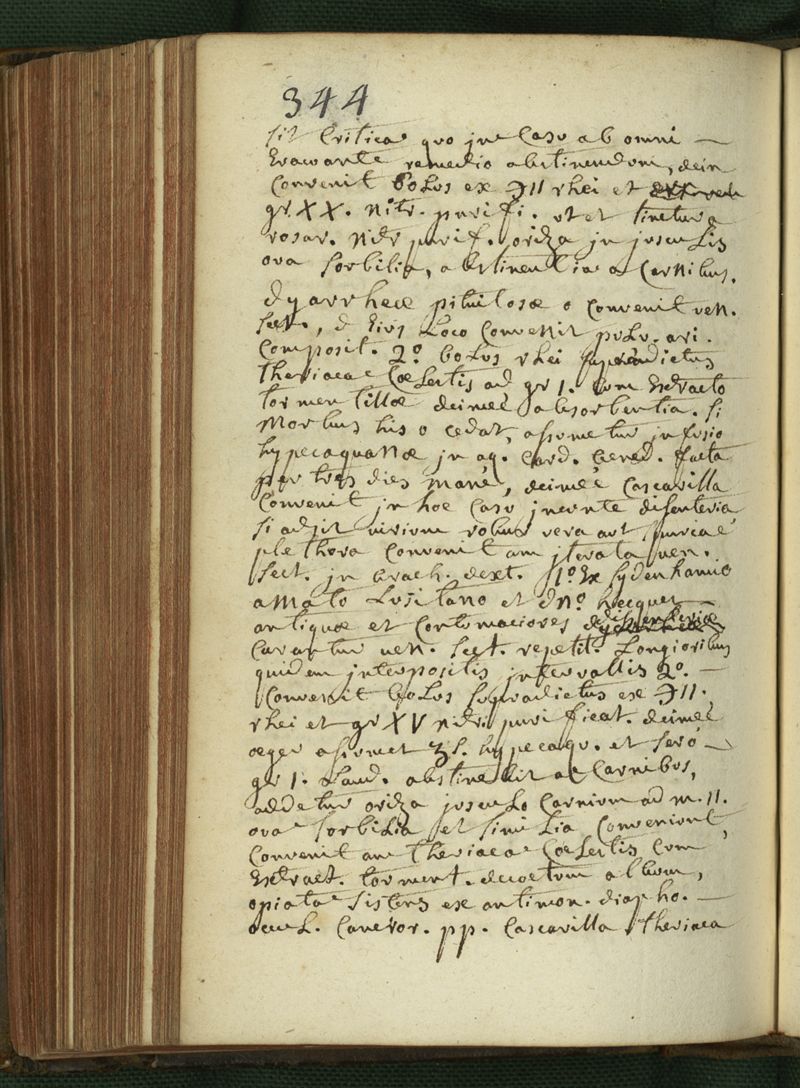 344
sit Critica quo jn Casu ab omni —
Evacuante remedio abstinendum, dein
Convenit bolus ex ℈II rhei et
gr XX. nitr. purifi. ut et tinctura
rosar. nitr purif. oriza jn jusculis
ova sorbilia, abstinentia a Carnibus.
dyarrheæ pituitosæ o Convenit ven.
sect., & Eius Loco Convenit pulv. ari.
Composit. 2º bolus rhei supradictus
theriacæ Cœlestis ad gr 1. Cum Extracto
tormentillæ deimcé absorbentia. si
Morbus his o cedat, assumetur jnfusio
hypecaquanæ jn aq. Card. Bened. facta
per tres dies mané, deimcé Cascarilla
Convenit jn hoc Casu jneunte disenteria
si adsit virium robur vera aut spuriaé
plethora Convenit am jterata ven.
sect. jn brach. dext. 1º Ex sydenhamio
amato Lusitano et dnº hecquet —
antiquæ et Contumaciores dissenteriæ
Curantur ven. sect. repetit. Longioribus
quidem jnterpositis jntervallis 2º. —
Convenit bolus supradictus ex ℈II.
rhei et gr XV nitr. purificat. deimcé
æger assumet ʒs. hypecaqu. et seró —
gr 1. Laud. abstinebit a Carnibus,
addetur oriza jusculo Carnium ad m. II.
ova sorbilia et similia Conveniunt,
Convenit am theriaca Cœlestis Cum
Extract. torment. decoctum album,
opiata sistens ex antimon. diapho. —
ocul. Cancror. pp. Cascarilla theriaca